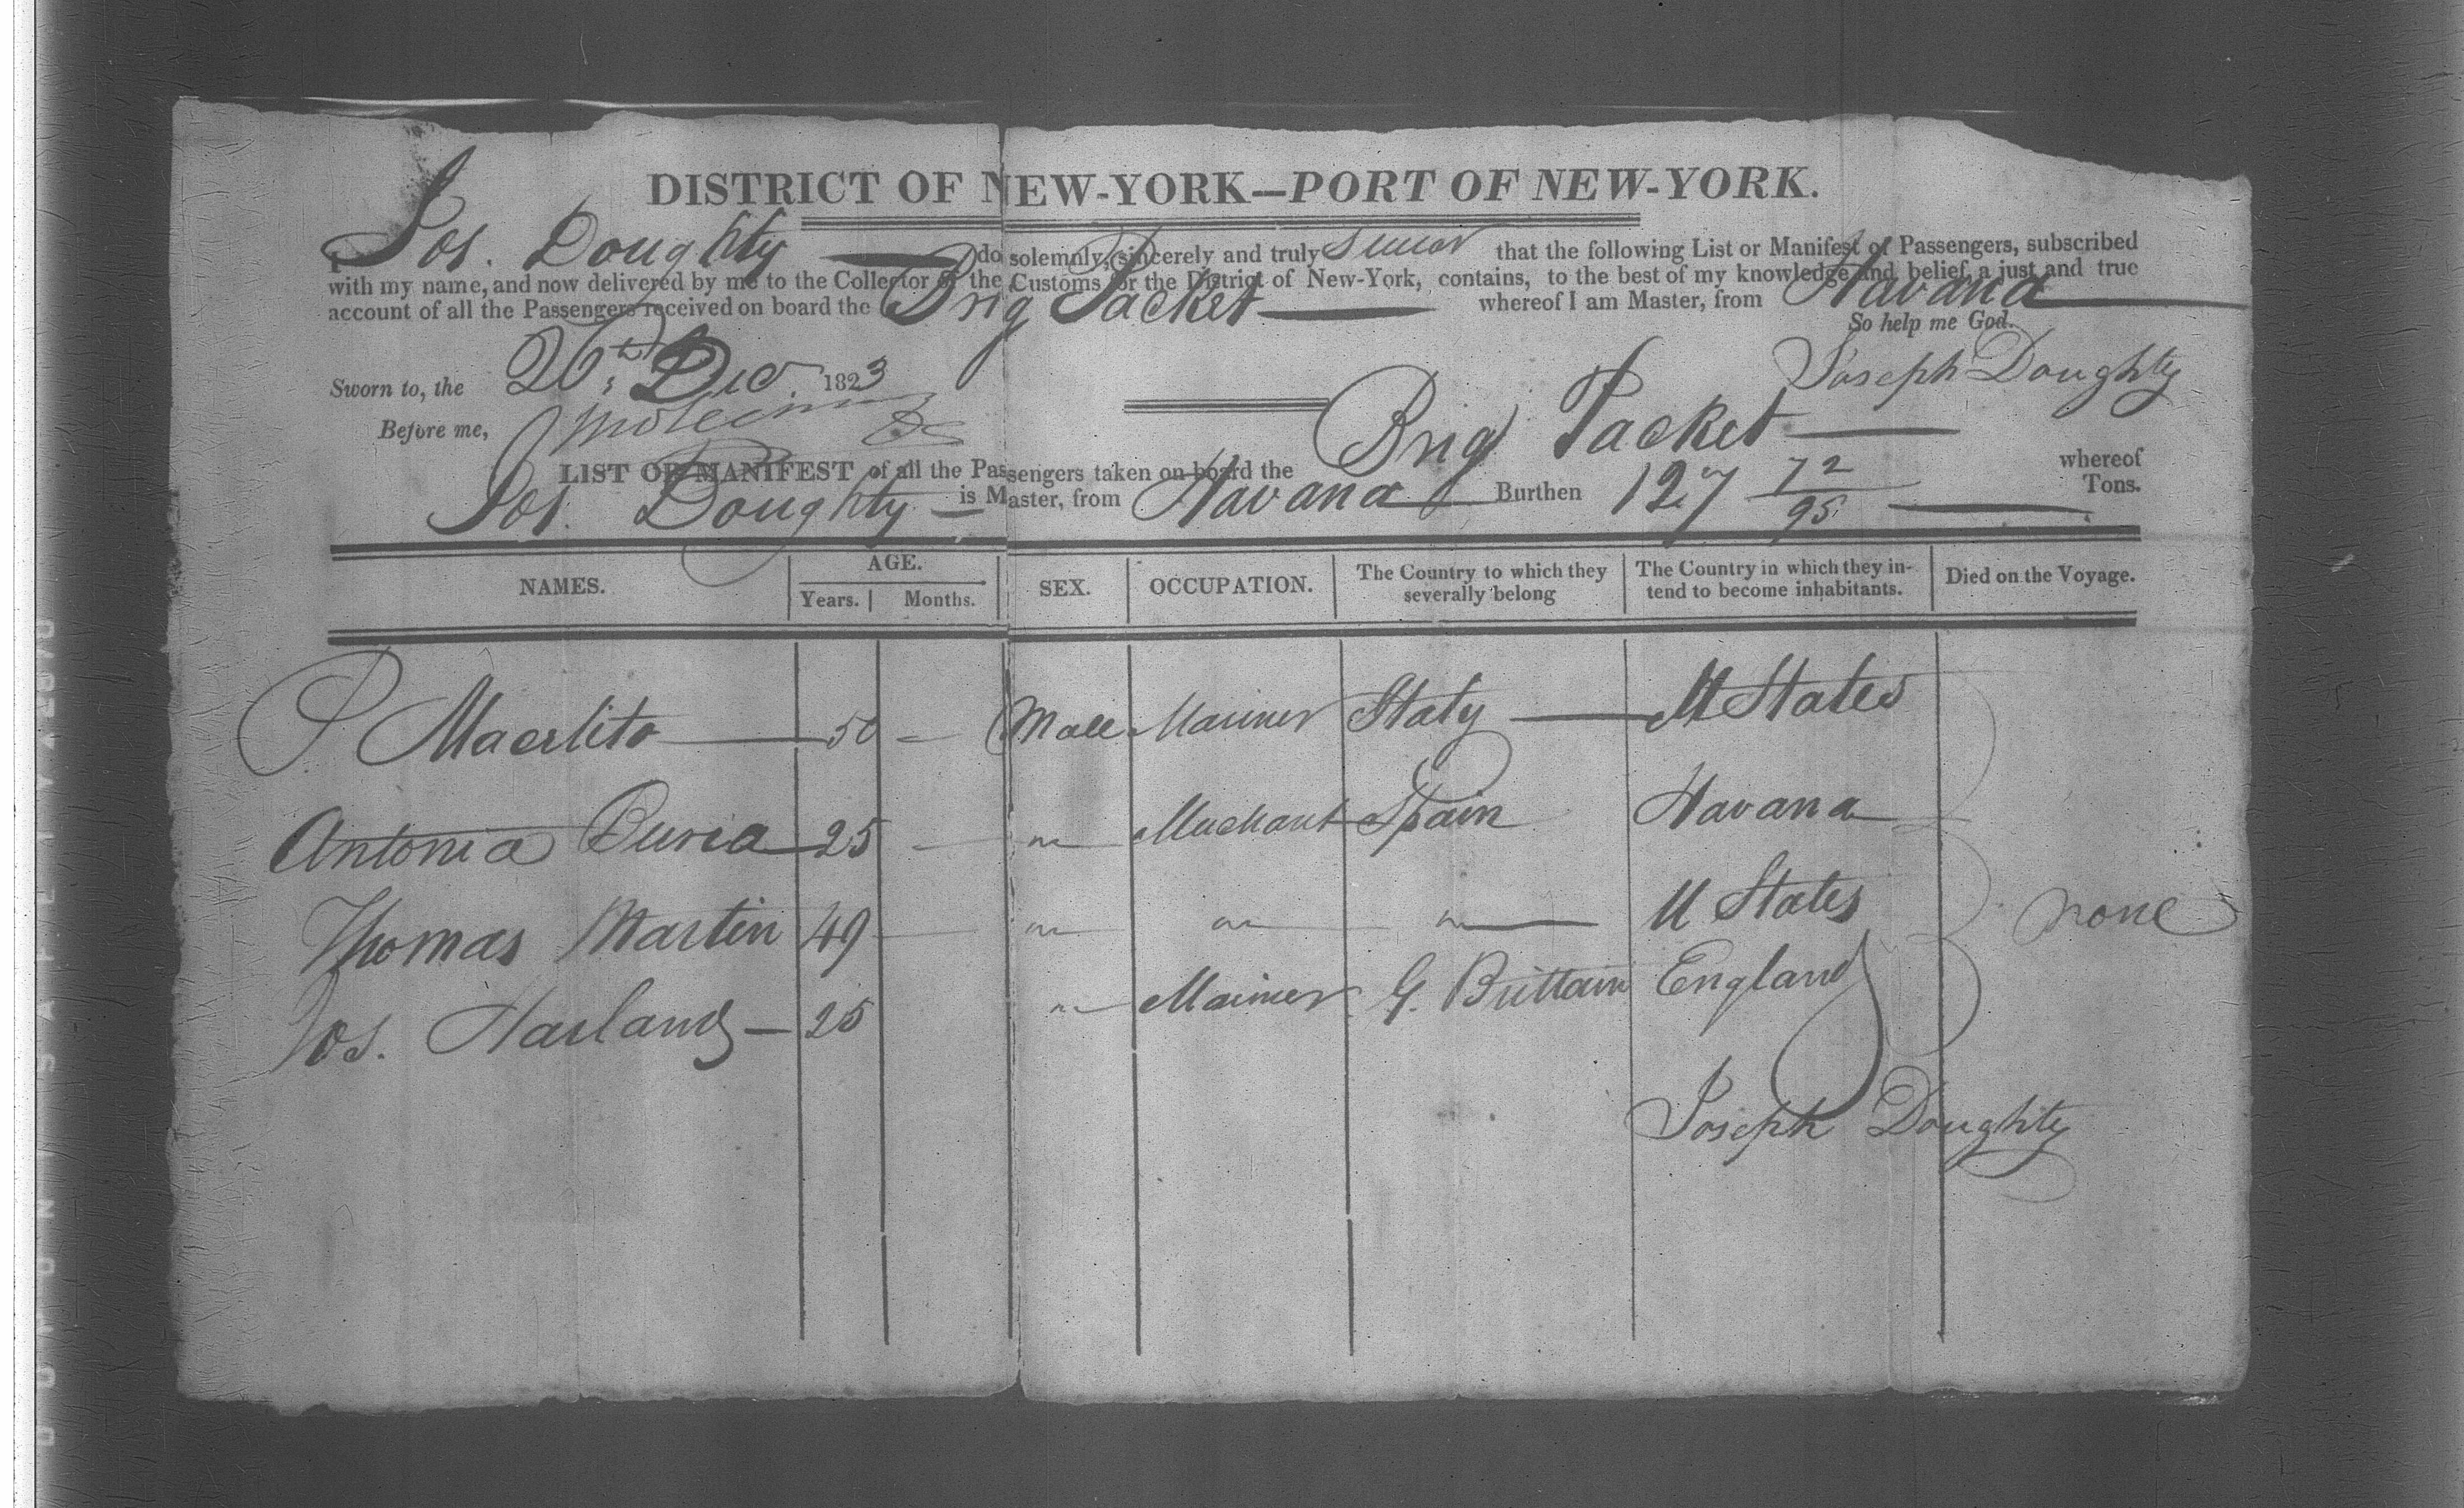 DISTRICT OF NEW-YORK—PORT OF NEW-YORK.
I Jos. Doughty do solemnly, sincerely and truly Swear that the following List or Manifest of Passengers, subscribed
with my name, and now delivered by me to the Collector of the Customs for the District of New-York, contains, to the best of my knowledge and belief, a just and true
account of all the Passengers received on board the Brig Packet whereof I am Master, from Havana
So help me God.
Sworn to, the 26th Dec 1823 Joseph Doughty
Before me,
LIST OR MANIFEST of all the Passengers taken on board the Brig Packet whereof
Jos. Doughty is Master, from Havana Burthen 127 72/95 Tons.
NAMES. AGE. Years. Months. SEX. OCCUPATION. The Country to which they severally belong The Country in which they intend to become inhabitants. Died on the Voyage.
P 50 Male Mariner Italy U States
Antonia 25 " Merchant Spain Havana
Thomas Martin 49 " " " U States none
Jos. Harland 25 " Mariner G. Brittain England
Joseph Doughty